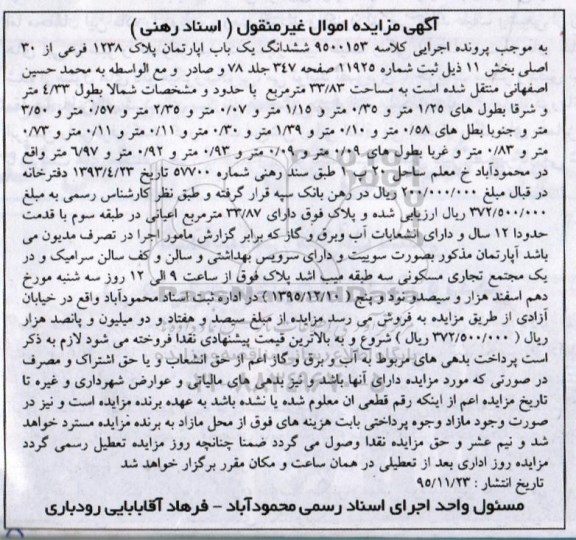 آگهی مزایده اموال غیرمنقول ( اسناد رهنی )
به موجب پرونده اجرایی کلاسه ۹۵۰۰۱۵۳ ششدانگ یک باب اپارتمان پلاک ۱۲۳۸ فرعی از ۳۰
اصلی بخش ۱۱ ذیل ثبت شماره ۱۱۹۲۵ صفحه ۳۴۷ جلد ۷۸ و صادر و مع الواسطه به محمد حسین
اصفهانی منتقل شده است به مساحت ۳۳/۸۳ مترمربع با حدود و مشخصات شمالا بطول ۴/۳۳ متر
و شرقا بطول های ۱/۲۵ متر و ۰/۳۵ متر و ۱/۱۵ متر و ۰/۰۷ متر و ۲/۳۵ متر و ۰/۵۷ متر و ۳/۵۰
متر و جنوبا بطل های ۰/۵۸ متر و ۰/۱۰ متر و ۱/۳۹ متر و ۰/۳۰ متر و ۰/۱۱ متر و ۰/۱۱ متر و ۰/۷۳
متر و ۰/۸۳ متر و غربا بطول های ۰/۰۹ متر و ۰/۰۹ متر و ۰/۹۳ متر و ۰/۹۲ متر و ۶/۹۷ متر واقع
در محمودآباد خ معلم ساحل ۱۰ پ ۱ طبق سند رهنی شماره ۵۷۷۰۰ تاریخ ۱۳۹۳/۴/۲۳ دفترخانه
در قبال مبلغ ۲۰۰/۰۰۰/۰۰۰ ریال در رهن بانک سپه قرار گرفته و طبق نظر کارشناس رسمی به مبلغ
۳۷۲/۵۰۰/۰۰۰ ریال ارزیابی شده و پلاک فوق دارای ۳۳/۸۷ مترمربع اعیانی در طبقه سوم با قدمت
حدودا ۱۲ سال و دارای انشعابات آب وبرق و گاز که برابر گزارش مامور اجرا در تصرف مدیون می
باشد آپارتمان مذکور بصورت سوییت و دارای سرویس بهداشتی و سالن و کف سالن سرامیک و در
یک مجتمع تجاری مسکونی سه طبقه میب اشد پلاک فوق از ساعت ۹ الی ۱۲ روز سه شنبه مورخ
دهم اسفند هزار و سیصد و نود و پنج ( ۱۳۹۵/۱۲/۱۰ ) در اداره ثبت اسناد محمودآباد واقع در خیابان
آزادی از طریق مزایده به فروش می رسد مزایده از مبلغ سیصد و هفتاد و دو میلیون و پانصد هزار
ریال ( ۳۷۲/۵۰۰/۰۰۰ ریال ) شروع و به بالاترین قیمت پیشنهادی نقدا فروخته می شود لازم به ذکر
است پرداخت بدهی های مربوط به آب و برق و گاز اعم از حق انشعاب و یا حق اشتراک و مصرف
در صورتی که مورد مزایده دارای آنها باشد و نیز بدهی های مالیاتی و عوارض شهرداری و غیره تا
تاریخ مزایده اعم از اینکه رقم قطعی ان معلوم شده یا نشده باشد به عهده برنده مزایده است و نیز در
صورت وجود مازاد وجوه پرداختی بابت هزینه های فوق از محل مازاد به برنده مزایده مسترد خواهد
شد و نیم عشر و حق مزایده نقدا وصول می گردد ضمنا چنانچه روز مزایده تعطیل رسمی گردد
مزایده روز اداری بعد از تعطیلی در همان ساعت و مکان مقرر برگزار خواهد شد
تاریخ انتشار : ۹۵/۱۱/۲۳
مسئول واحد اجرای اسناد رسمی محمودآباد - فرهاد آقابابایی رودباری